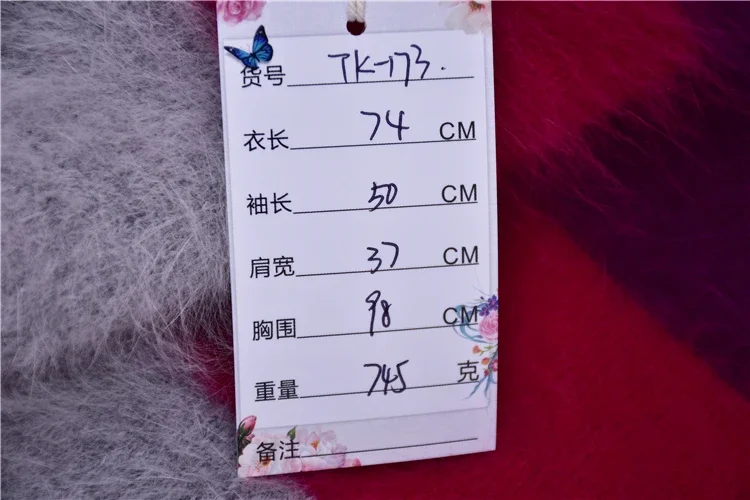 货号 TK-173.
衣长 74 CM
袖长 50 CM
肩宽 37 CM
胸围 98 CM
重量 745 克
备注